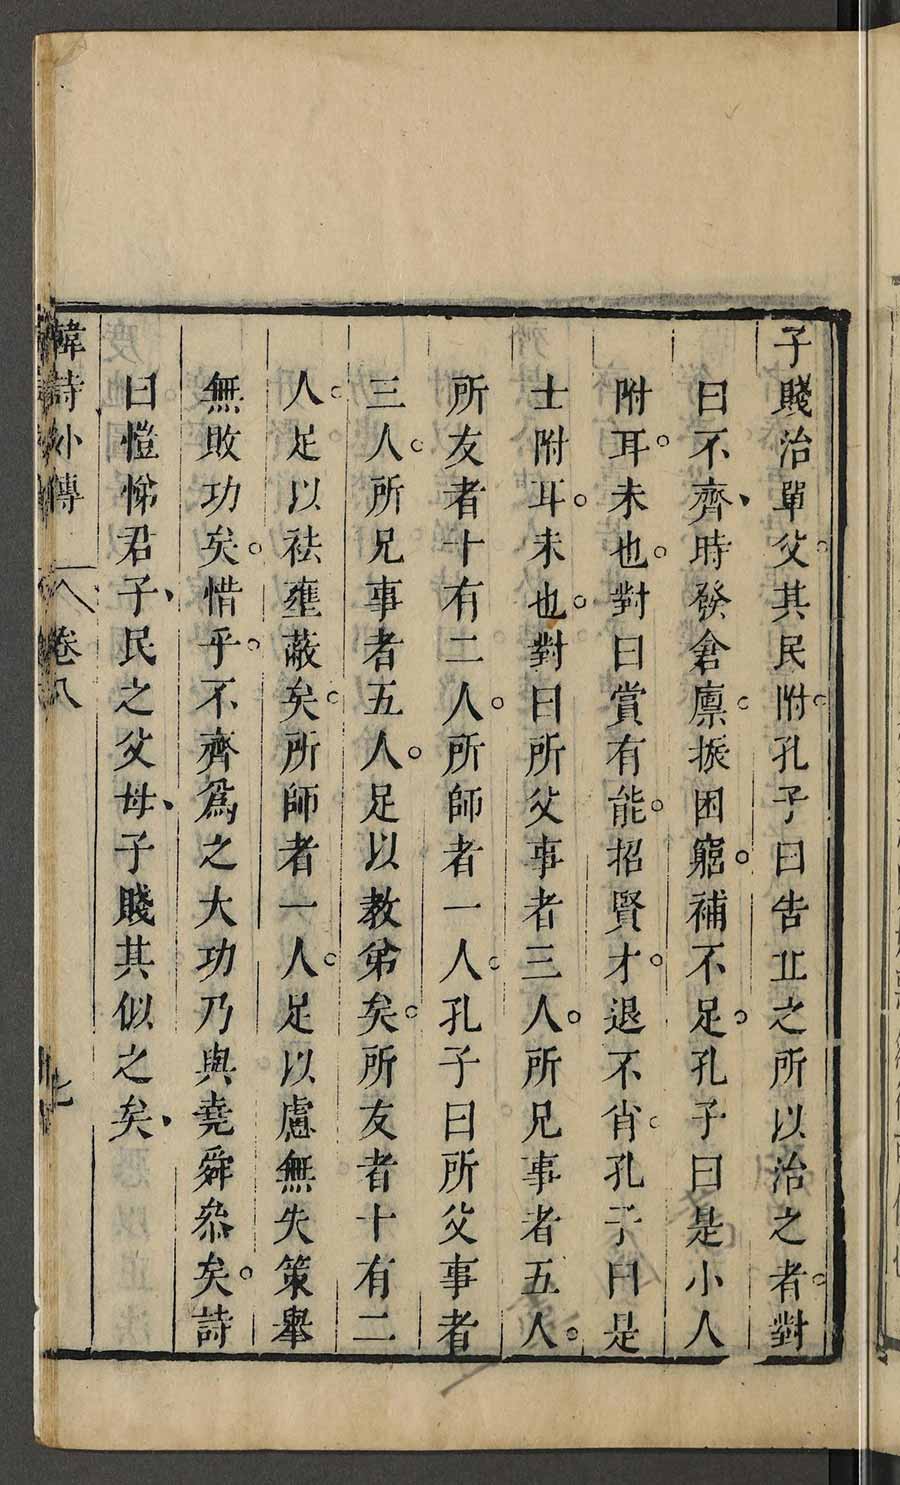 子賤治單父其民附孔子曰告丘之所以治之者對
曰不齊時發倉廩振困窮補不足孔子曰是小人
附耳未也對曰賞有能招賢才退不肖孔子曰是
士附耳未也對曰所父事者三人所兄事者五人
所友者十有二人所師者一人孔子曰所父事者
三人所兄事者五人足以教弟矣所友者十有二
人足以祛壅蔽矣所師者一人足以慮無失策舉
無敗功矣惜乎不齊爲之大功乃與堯舜叅矣詩
曰愷悌君子民之父母子賤其似之矣
韓詩外傳 卷八 七